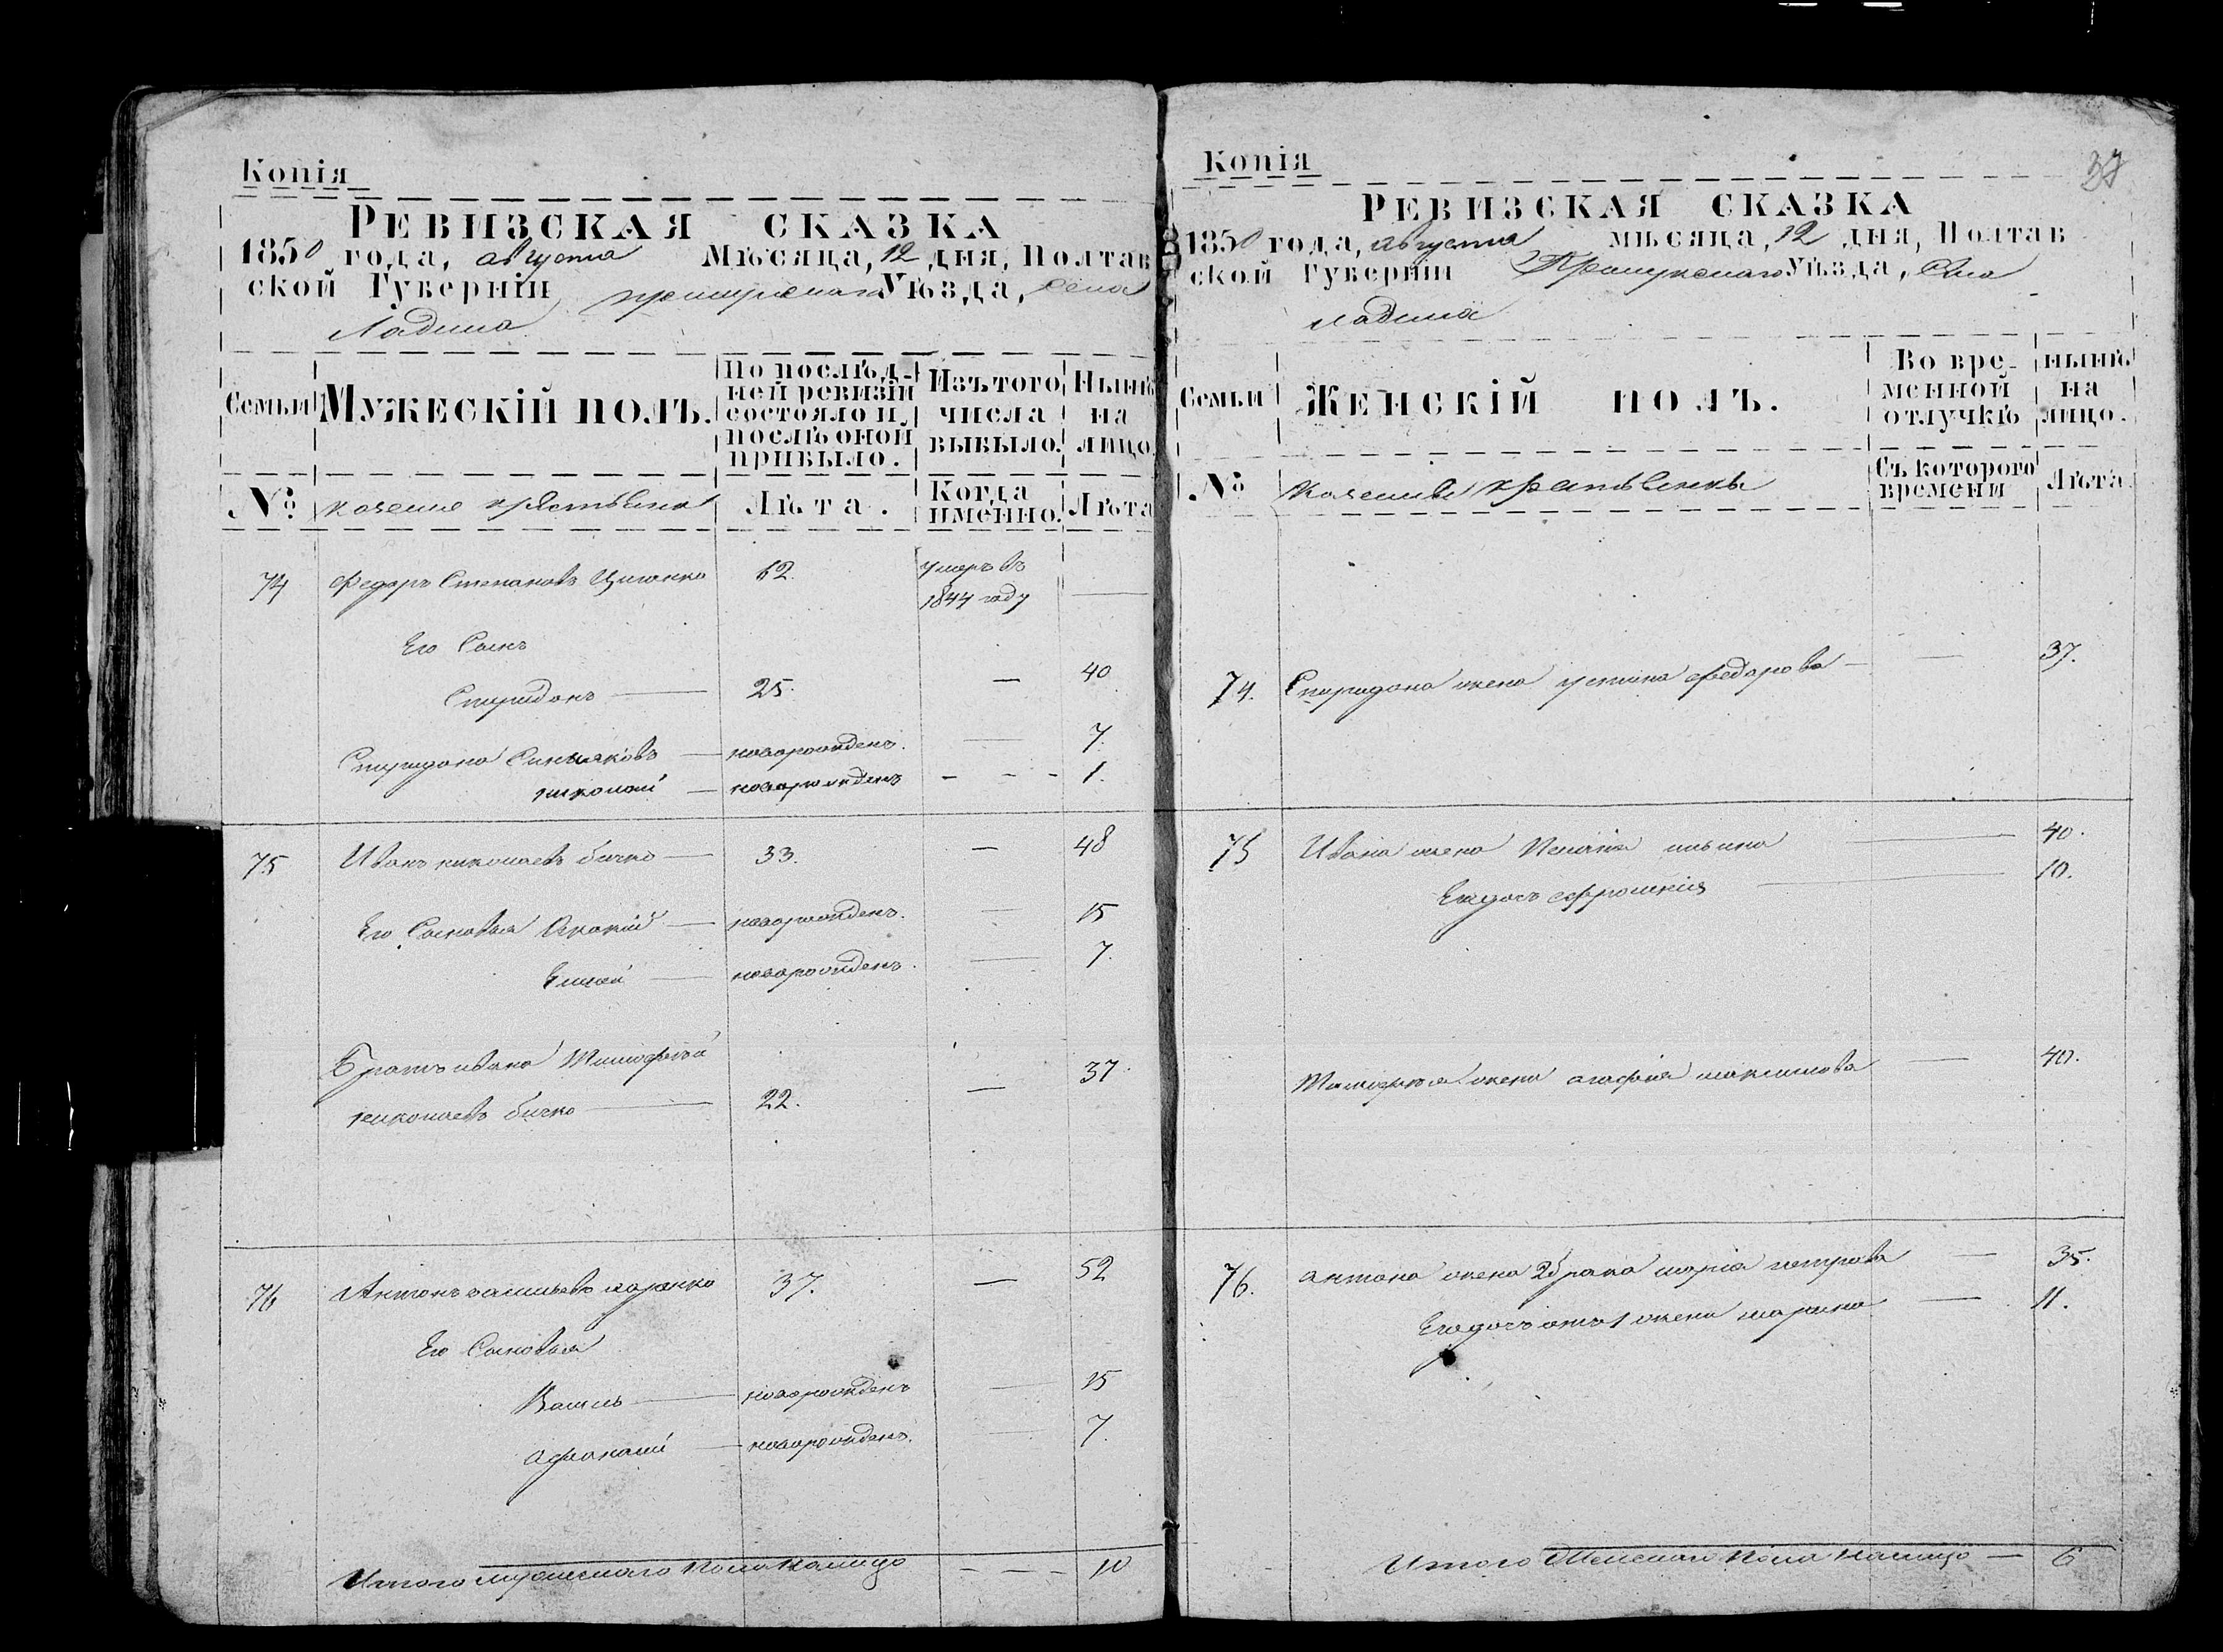 Копія
РЕВИЗСКАЯ СКАЗКА
1850 года, августа Мѣсяца, 12 дня, Полтав
ской Губерніи прилукскаго Уѣзда, села
Ладина
Семьи
МУЖЕСКІЙ ПОЛЪ.
По послѣд-
ней ревизіи
состояло и
послѣ оной
прибыло.
Изъ того
числа
выбыло.
Нынѣ
на
лицо
№
Лѣта.
Когда
именно.
Лѣта
74 Федоръ Степановъ 62. умеръ въ
1844 году —
Его Сынъ
Спиридонъ — 25. — 40
Спиридона Сынъ яковъ — новорожденъ. — 7.
николай — новорожденъ - - - 1.
75 Иванъ николаевъ бичко — 33. — 48
Его Сыновья Акакій — новорожденъ. — 15
Елисей — новорожденъ. — 7.
Братъ ивана Тимофѣй
николаевъ бичко — 22. — 37.
76 Антонъ васильевъ 37. — 52
Его Сыновья
Василь — новорожденъ — 15
афанасій — новорожденъ. — 7.
Итого мужескаго пола налицо - - - 10
Копія
37
РЕВИЗСКАЯ СКАЗКА
1850 года, августа мѣсяца, 12 дня, Полтав
ской Губерніи Прилукскаго Уѣзда, Села
ладина
Семьи
ЖЕНСКІЙ ПОЛЪ.
Во вре-
менной
отлучкѣ
нынѣ
на
лицо.
№
Съ которого
времени
Лѣта
74. Спиридона жена устина федорова — — 37.
75 Ивана жена Пелагія ильина — 40.
Его дочь ефросинія — 10.
Тимофѣя жена агафія максимова — 40.
76. антона жена 2 брака марія петрова — 35.
Его дочь отъ 1 жены марина — 11.
Итого Женскаго пола налицо — 6